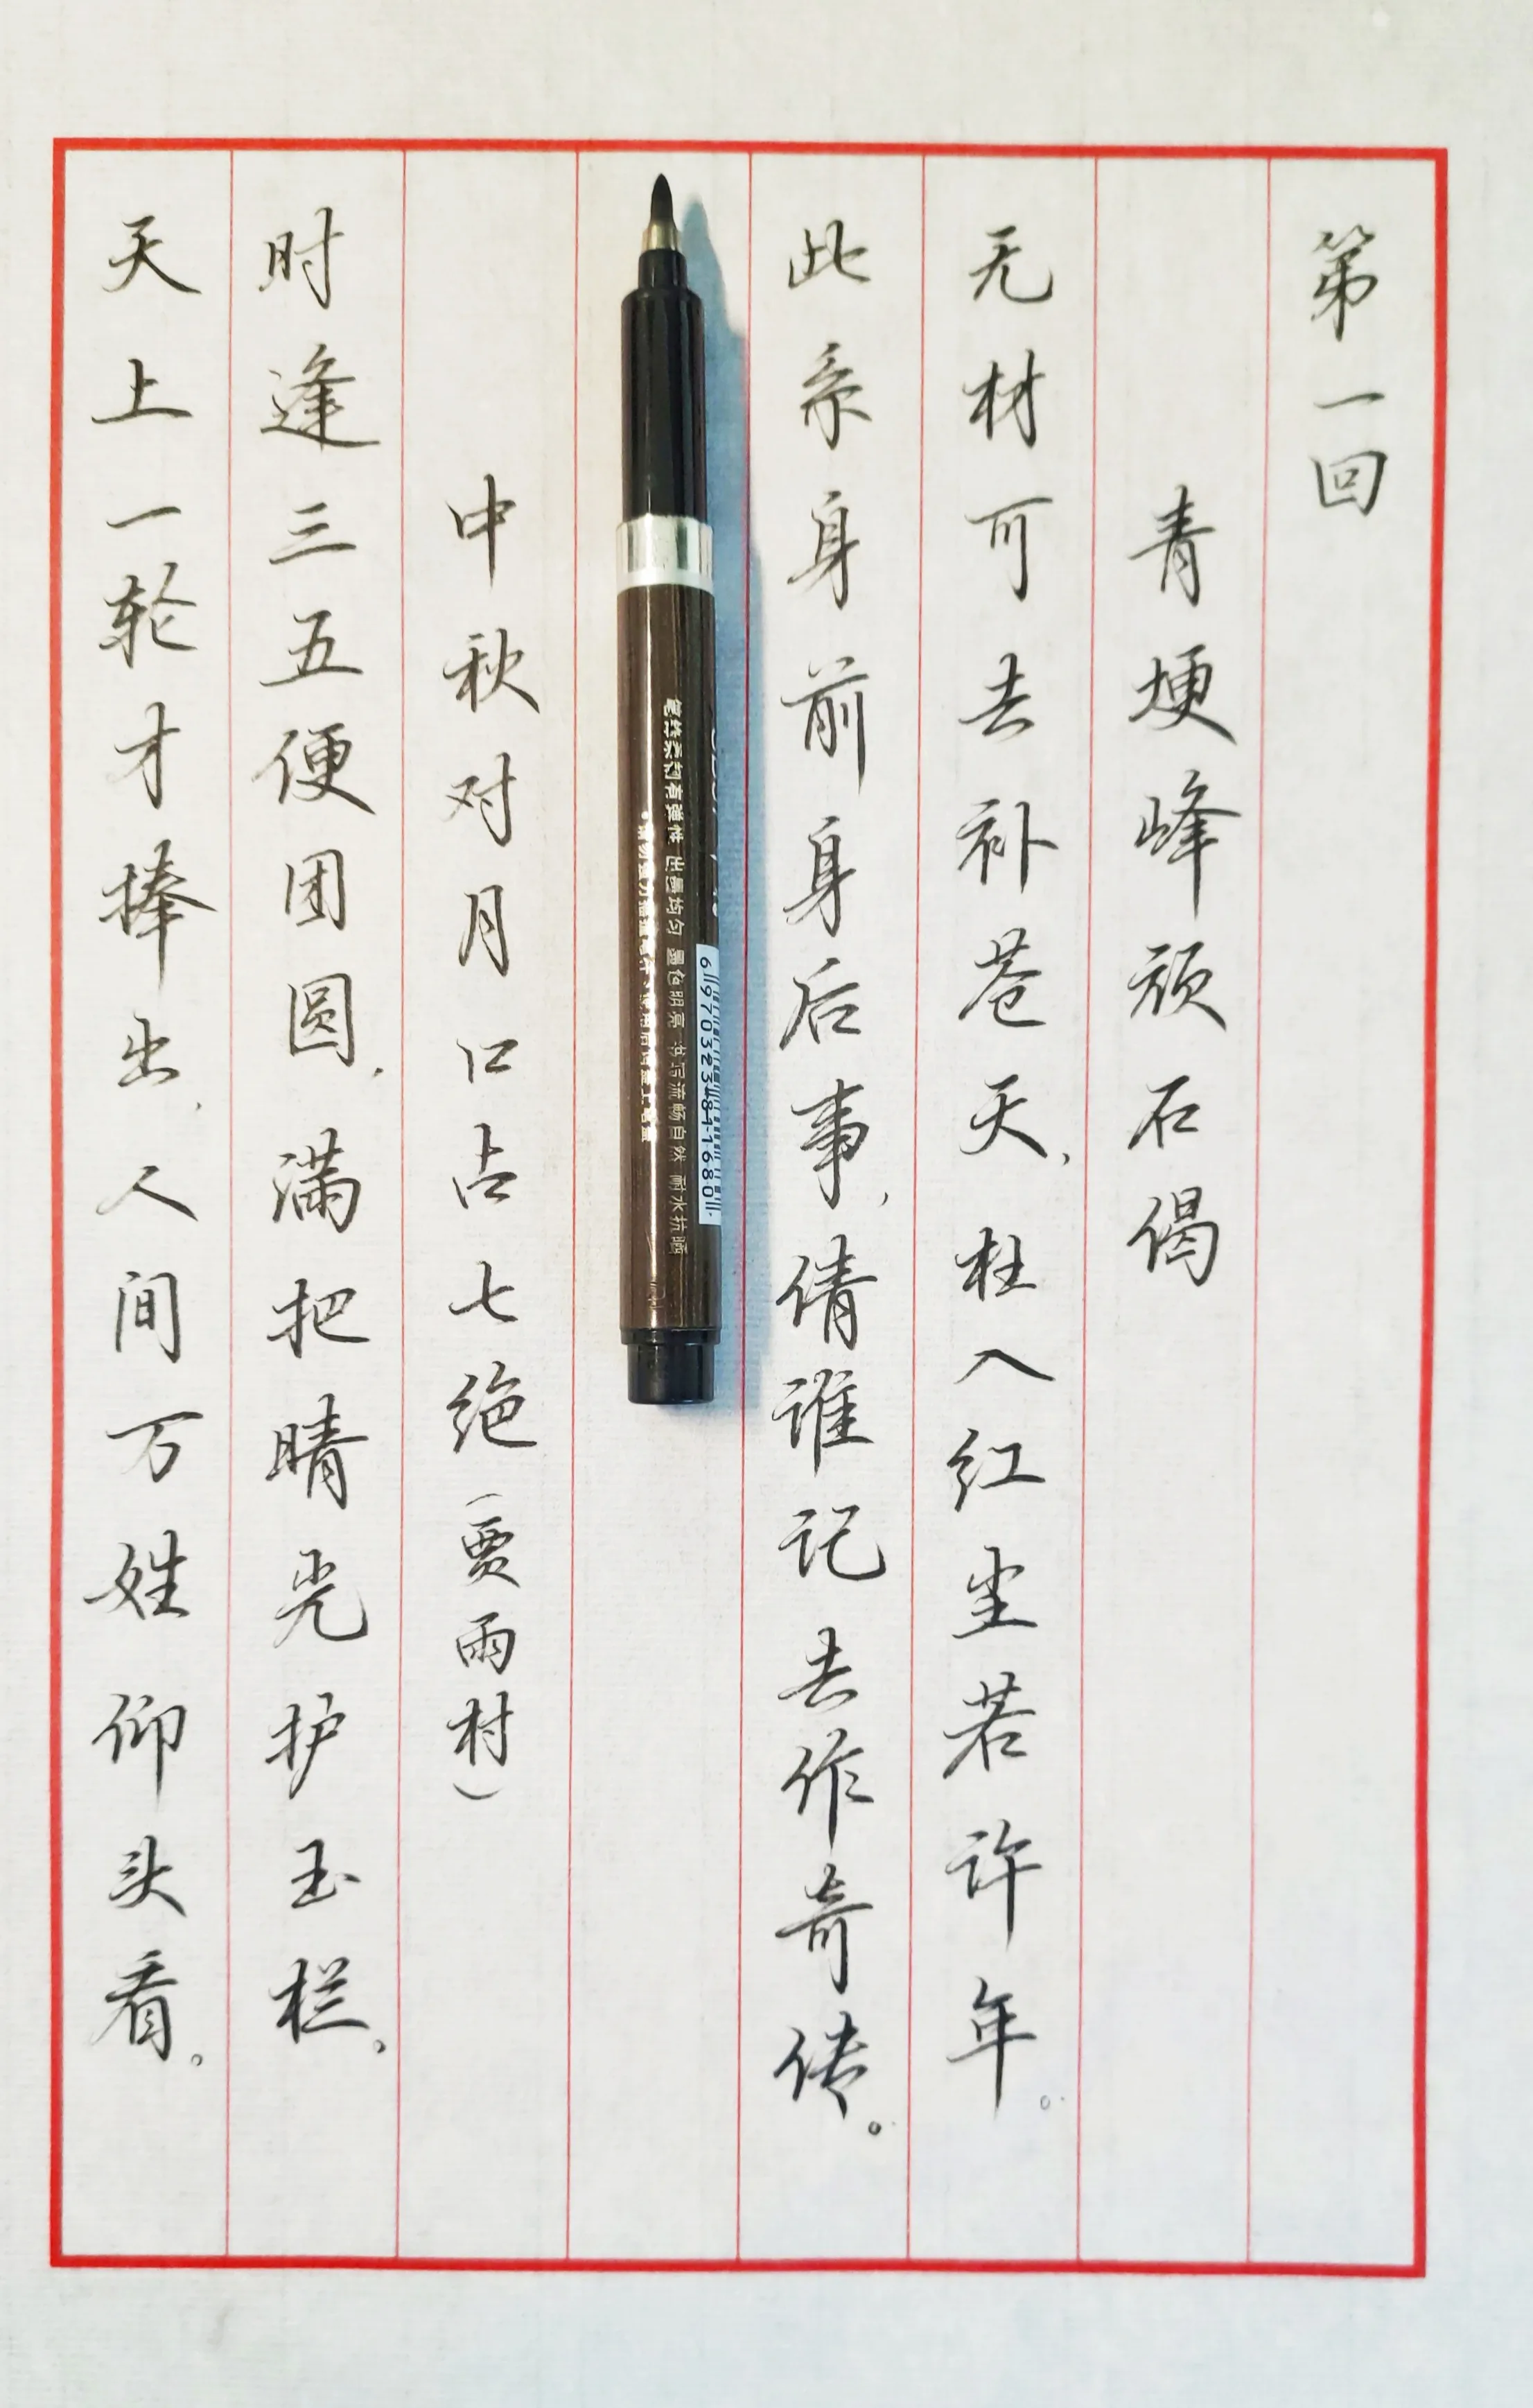 第一回
青埂峰顽石偈
无材可去补苍天,枉入红尘若许年。
此系身前身后事,倩谁记去作奇传。
笔丝柔韧有弹性 出墨均匀 墨色明亮 书写流畅自然 耐水抗晒
中秋对月口占七绝(贾雨村)
时逢三五便团圆,满把晴光护玉栏。
天上一轮才捧出,人间万姓仰头看。